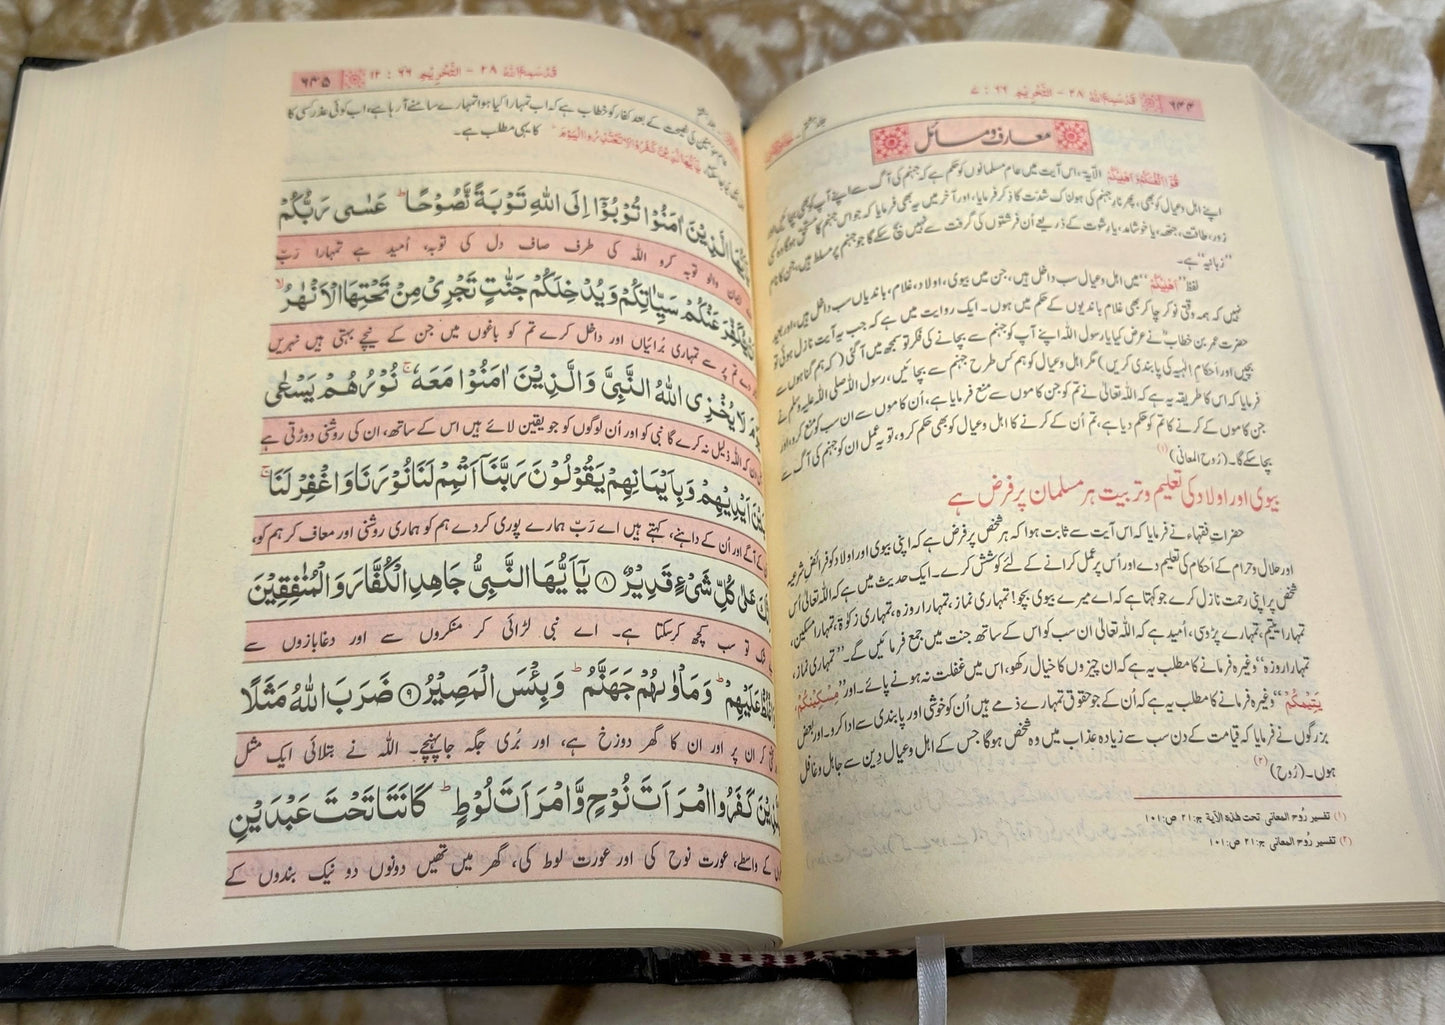 ۶۴۴
قَدْ سَمِعَ اللهُ ۲۸ - التَّحْرِيْم ۶۶ : ۷
معارف و مسائل
قُوْٓا اَنْفُسَكُمْ وَاَهْلِيْكُمْ الآیۃ، اس آیت میں عام مسلمانوں کو حکم ہے کہ جہنم کی آگ سے اپنے آپ کو بھی بچائیں اور
اپنے اہل و عیال کو بھی، پھر نارِ جہنم کی ہولناک شدت کا ذکر فرمایا، اور آخر میں یہ بھی فرمایا کہ جو اس جہنم کا مستحق ہوگا وہ کسی
زور، طاقت، جتھہ، یا خوشامد، یا رِشوت کے ذریعے اُن فرشتوں کی گرفت سے نہیں بچ سکے گا جو جہنم پر مسلط ہیں، جن کا نام
”زبانیہ“ ہے۔
لفظ ”اَهْلِيْكُمْ“ میں اہل و عیال سب داخل ہیں، جن میں بیوی، اولاد، غلام، باندیاں سب داخل ہیں، اور بعید
نہیں کہ ہمہ وقتی نوکر چاکر بھی غلام باندیوں کے حکم میں ہوں۔ ایک روایت میں ہے کہ جب یہ آیت نازل ہوئی تو
حضرت عمر بن خطابؓ نے عرض کیا یا رسول اللہ اپنے آپ کو جہنم سے بچانے کی فکر تو سمجھ میں آگئی (کہ ہم گناہوں سے
بچیں اور اَحکامِ الٰہیہ کی پابندی کریں) مگر اہل و عیال کو ہم کس طرح جہنم سے بچائیں، رسول اللہ صلی اللہ علیہ وسلم نے
فرمایا کہ اس کا طریقہ یہ ہے کہ اللہ تعالیٰ نے تم کو جن کاموں سے منع فرمایا ہے، اُن کاموں سے ان سب کو منع کرو، اور
جن کاموں کے کرنے کا تم کو حکم دیا ہے، تم اُن کے کرنے کا اہل و عیال کو بھی حکم کرو، تو یہ عمل ان کو جہنم کی آگ سے
بچا سکے گا۔ (رُوح المعانی) (۱)
بیوی اور اولاد کی تعلیم و تربیت ہر مسلمان پر فرض ہے
حضراتِ فقہاء نے فرمایا کہ اس آیت سے ثابت ہوا کہ ہر شخص پر فرض ہے کہ اپنی بیوی اور اولاد کو فرائضِ شرعیہ
اور حلال و حرام کے اَحکام کی تعلیم دے اور اُس پر عمل کرانے کے لئے کوشش کرے۔ ایک حدیث میں ہے کہ اللہ تعالیٰ اُس
شخص پر اپنی رحمت نازل کرے جو کہتا ہے کہ اے میرے بیوی بچو! تمہاری نماز، تمہارا روزہ، تمہاری زکوٰۃ، تمہارا مسکین،
تمہارا یتیم، تمہارے پڑوسی، اُمید ہے کہ اللہ تعالیٰ ان سب کو اس کے ساتھ جنت میں جمع فرمائیں گے۔ ”تمہاری نماز،
تمہارا روزہ“ وغیرہ فرمانے کا مطلب یہ ہے کہ ان چیزوں کا خیال رکھو، اس میں غفلت نہ ہونے پائے۔ اور ”مِسْكِيْنَكُمْ،
يَتِيْمَكُمْ“ وغیرہ فرمانے کا مطلب یہ ہے کہ اُن کے جو حقوق تمہارے ذمے ہیں اُن کو خوشی اور پابندی سے ادا کرو۔ اور بعض
بزرگوں نے فرمایا کہ قیامت کے دن سب سے زیادہ عذاب میں وہ شخص ہوگا جس کے اہل و عیال دِین سے جاہل و غافل
ہوں۔ (رُوح) (۲)
(۱) تفسير رُوح المعانی تحت هٰذه الآية ج:۲۱ ص:۱۰۱
(۲) تفسير رُوح المعانی ج:۲۱ ص:۱۰۱
قَدْ سَمِعَ اللهُ ۲۸ - التَّحْرِيْم ۶۶ : ۱۲
۶۴۵
کی نصیحت کے بعد کفار کو خطاب ہے کہ اب تمہارا کیا ہوا تمہارے سامنے آرہا ہے، اب کوئی عذر کسی کا
يٰٓاَيُّهَا الَّذِيْنَ كَفَرُوْا لَا تَعْتَذِرُوا الْيَوْمَ کا یہی مطلب ہے۔
الَّذِيْنَ اٰمَنُوْا تُوْبُوْٓا اِلَى اللهِ تَوْبَةً نَّصُوْحًا ؕ عَسٰى رَبُّكُمْ
ایمان والو توبہ کرو اللہ کی طرف صاف دل کی توبہ، اُمید ہے تمہارا رَبّ
يُّكَفِّرَ عَنْكُمْ سَيِّاٰتِكُمْ وَيُدْخِلَكُمْ جَنّٰتٍ تَجْرِيْ مِنْ تَحْتِهَا الْاَنْهٰرُ ۙ
دے تم پر سے تمہاری بُرائیاں اور داخل کرے تم کو باغوں میں جن کے نیچے بہتی ہیں نہریں
لَا يُخْزِى اللهُ النَّبِيَّ وَالَّذِيْنَ اٰمَنُوْا مَعَهٗ ۚ نُوْرُهُمْ يَسْعٰى
کہ اللہ ذلیل نہ کرے گا نبی کو اور اُن لوگوں کو جو یقین لائے ہیں اس کے ساتھ، ان کی روشنی دوڑتی ہے
بَيْنَ اَيْدِيْهِمْ وَبِاَيْمَانِهِمْ يَقُوْلُوْنَ رَبَّنَآ اَتْمِمْ لَنَا نُوْرَنَا وَاغْفِرْ لَنَا ۚ
کے آگے اور اُن کے داہنے، کہتے ہیں اے رَبّ ہمارے پوری کردے ہم کو ہماری روشنی اور معاف کر ہم کو،
عَلٰى كُلِّ شَيْءٍ قَدِيْرٌ ۸ يٰٓاَيُّهَا النَّبِيُّ جَاهِدِ الْكُفَّارَ وَالْمُنٰفِقِيْنَ
تو سب کچھ کرسکتا ہے۔ اے نبی لڑائی کر منکروں سے اور دغابازوں سے
وَاغْلُظْ عَلَيْهِمْ ؕ وَمَاْوٰىهُمْ جَهَنَّمُ ؕ وَبِئْسَ الْمَصِيْرُ ۹ ضَرَبَ اللهُ مَثَلًا
کر ان پر اور ان کا گھر دوزخ ہے، اور بُری جگہ جا پہنچے۔ اللہ نے بتلائی ایک مثل
لِّلَّذِيْنَ كَفَرُوا امْرَاَتَ نُوْحٍ وَّامْرَاَتَ لُوْطٍ ؕ كَانَتَا تَحْتَ عَبْدَيْنِ
کے واسطے، عورت نوح کی اور عورت لوط کی، گھر میں تھیں دونوں دو نیک بندوں کے